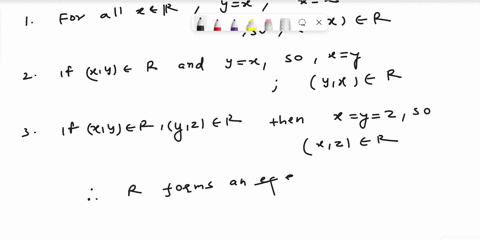 1. For all x ∈ R, y=x,
so, x) ∈ R
2. if (x,y) ∈ R and y=x, so, x=y
; (y,x) ∈ R
3. if (x,y) ∈ R, (y,z) ∈ R then x=y=z, so
(x,z) ∈ R
∴ R forms an eqe